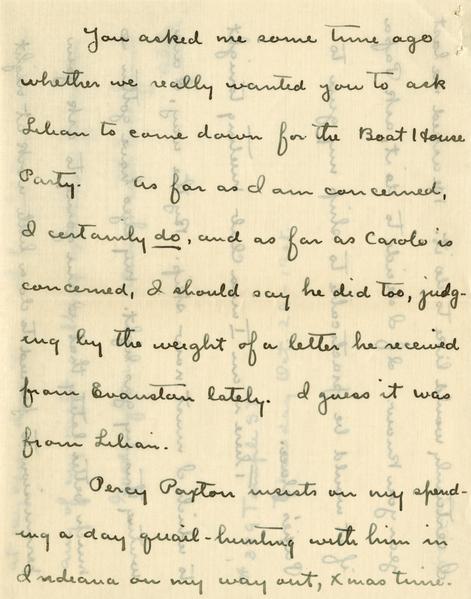 You asked me some time ago
whether we really wanted you to ask
Lilian to come down for the Boat House
Party. As far as I am concerned,
I certainly do, and as far as Carolo is
concerned, I should say he did too, judg-
ing by the weight of a letter he received
from Evanston lately. I guess it was
from Lilian.
Percy Paxton insists on my spend-
ing a day quail-hunting with him in
Indeana on my way out, Xmas time.